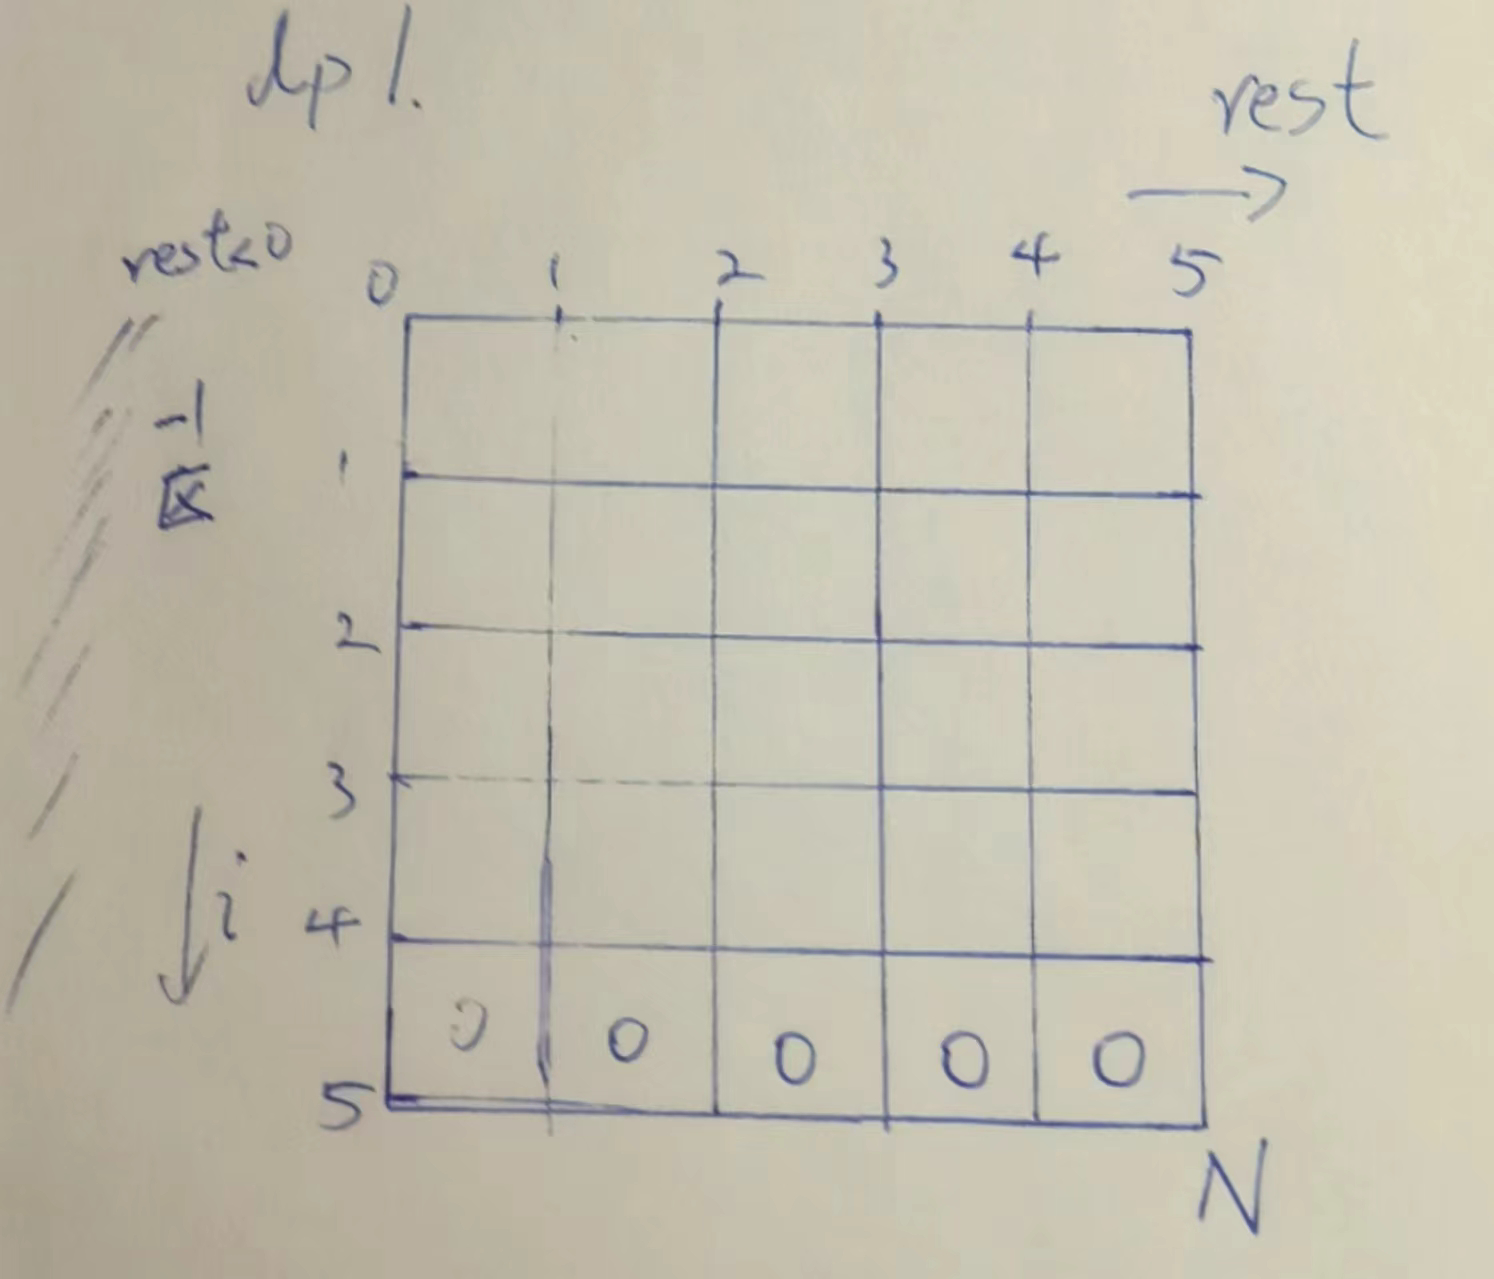 dp1.
rest
rest<0
0 1 2 3 4 5
-1
区
1
2
3
i
4
0 0 0 0 0
5
N